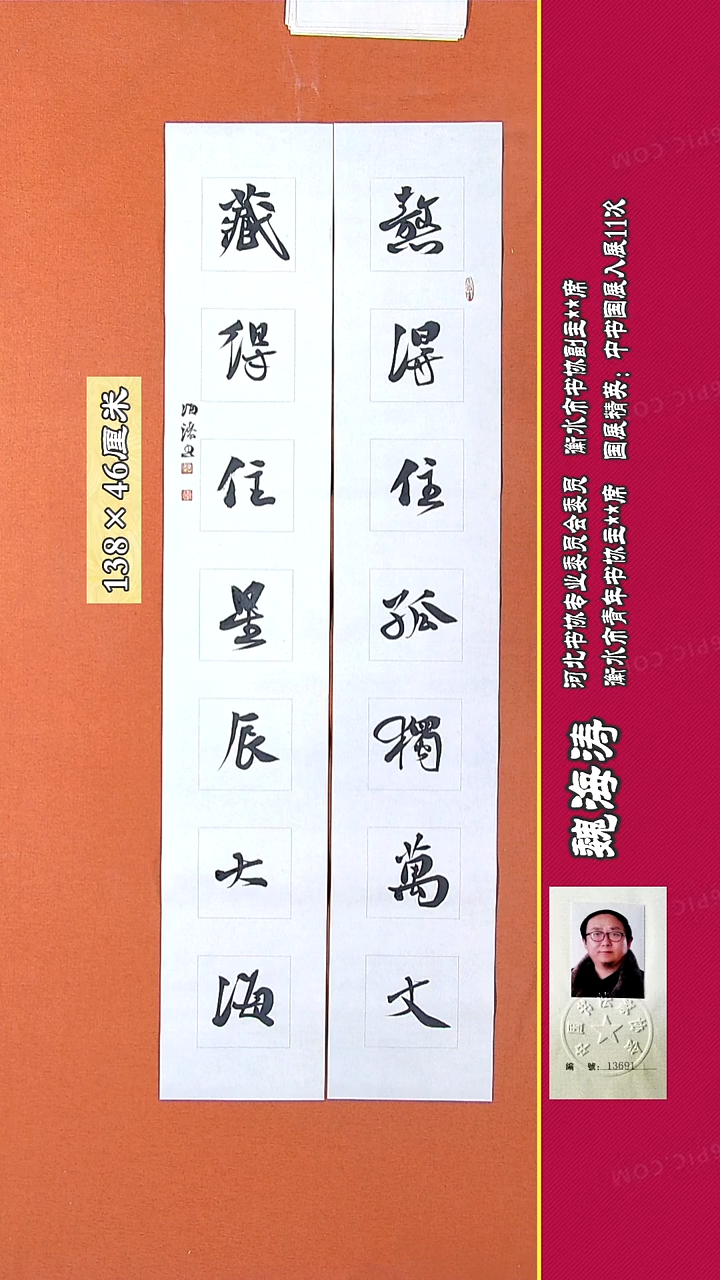 熬得住孤獨萬丈
藏得住星辰大海
海濤書
138×46厘米
魏海涛
河北书协专业委员会委员 衡水市书协副主**席
衡水市青年书协主**席 国展精英：中书国展入展11次
編 號：13691